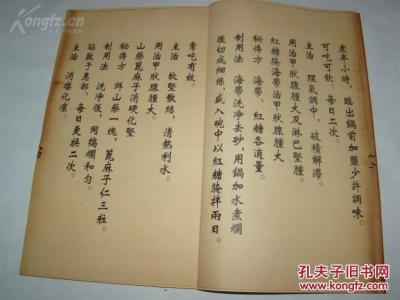 煮半小時，臨出鍋前加鹽少許調味。
可吃可飲。每日二次。
主治　理氣調中，破積解滯。
用治甲狀腺腫大及淋巴堅腫。
紅糖腌海帶治甲狀腺腫大
秘傳方　海帶、紅糖各適量。
制用法　海帶洗凈去砂，用鍋加水煮爛
後切成細絲，盛入碗中以紅糖腌拌兩日。
常吃有效。
主治　軟堅散結，清熱利水。
用治甲狀腺腫大。
山藥蓖麻子消硬化堅
秘傳方　鮮山藥一塊，蓖麻子仁三粒。
制用法　洗凈後，同搗爛和勻。
貼敷于患部，每日更換二次。
主治　消癭化痰。
Kongfz.com
孔夫子舊書網